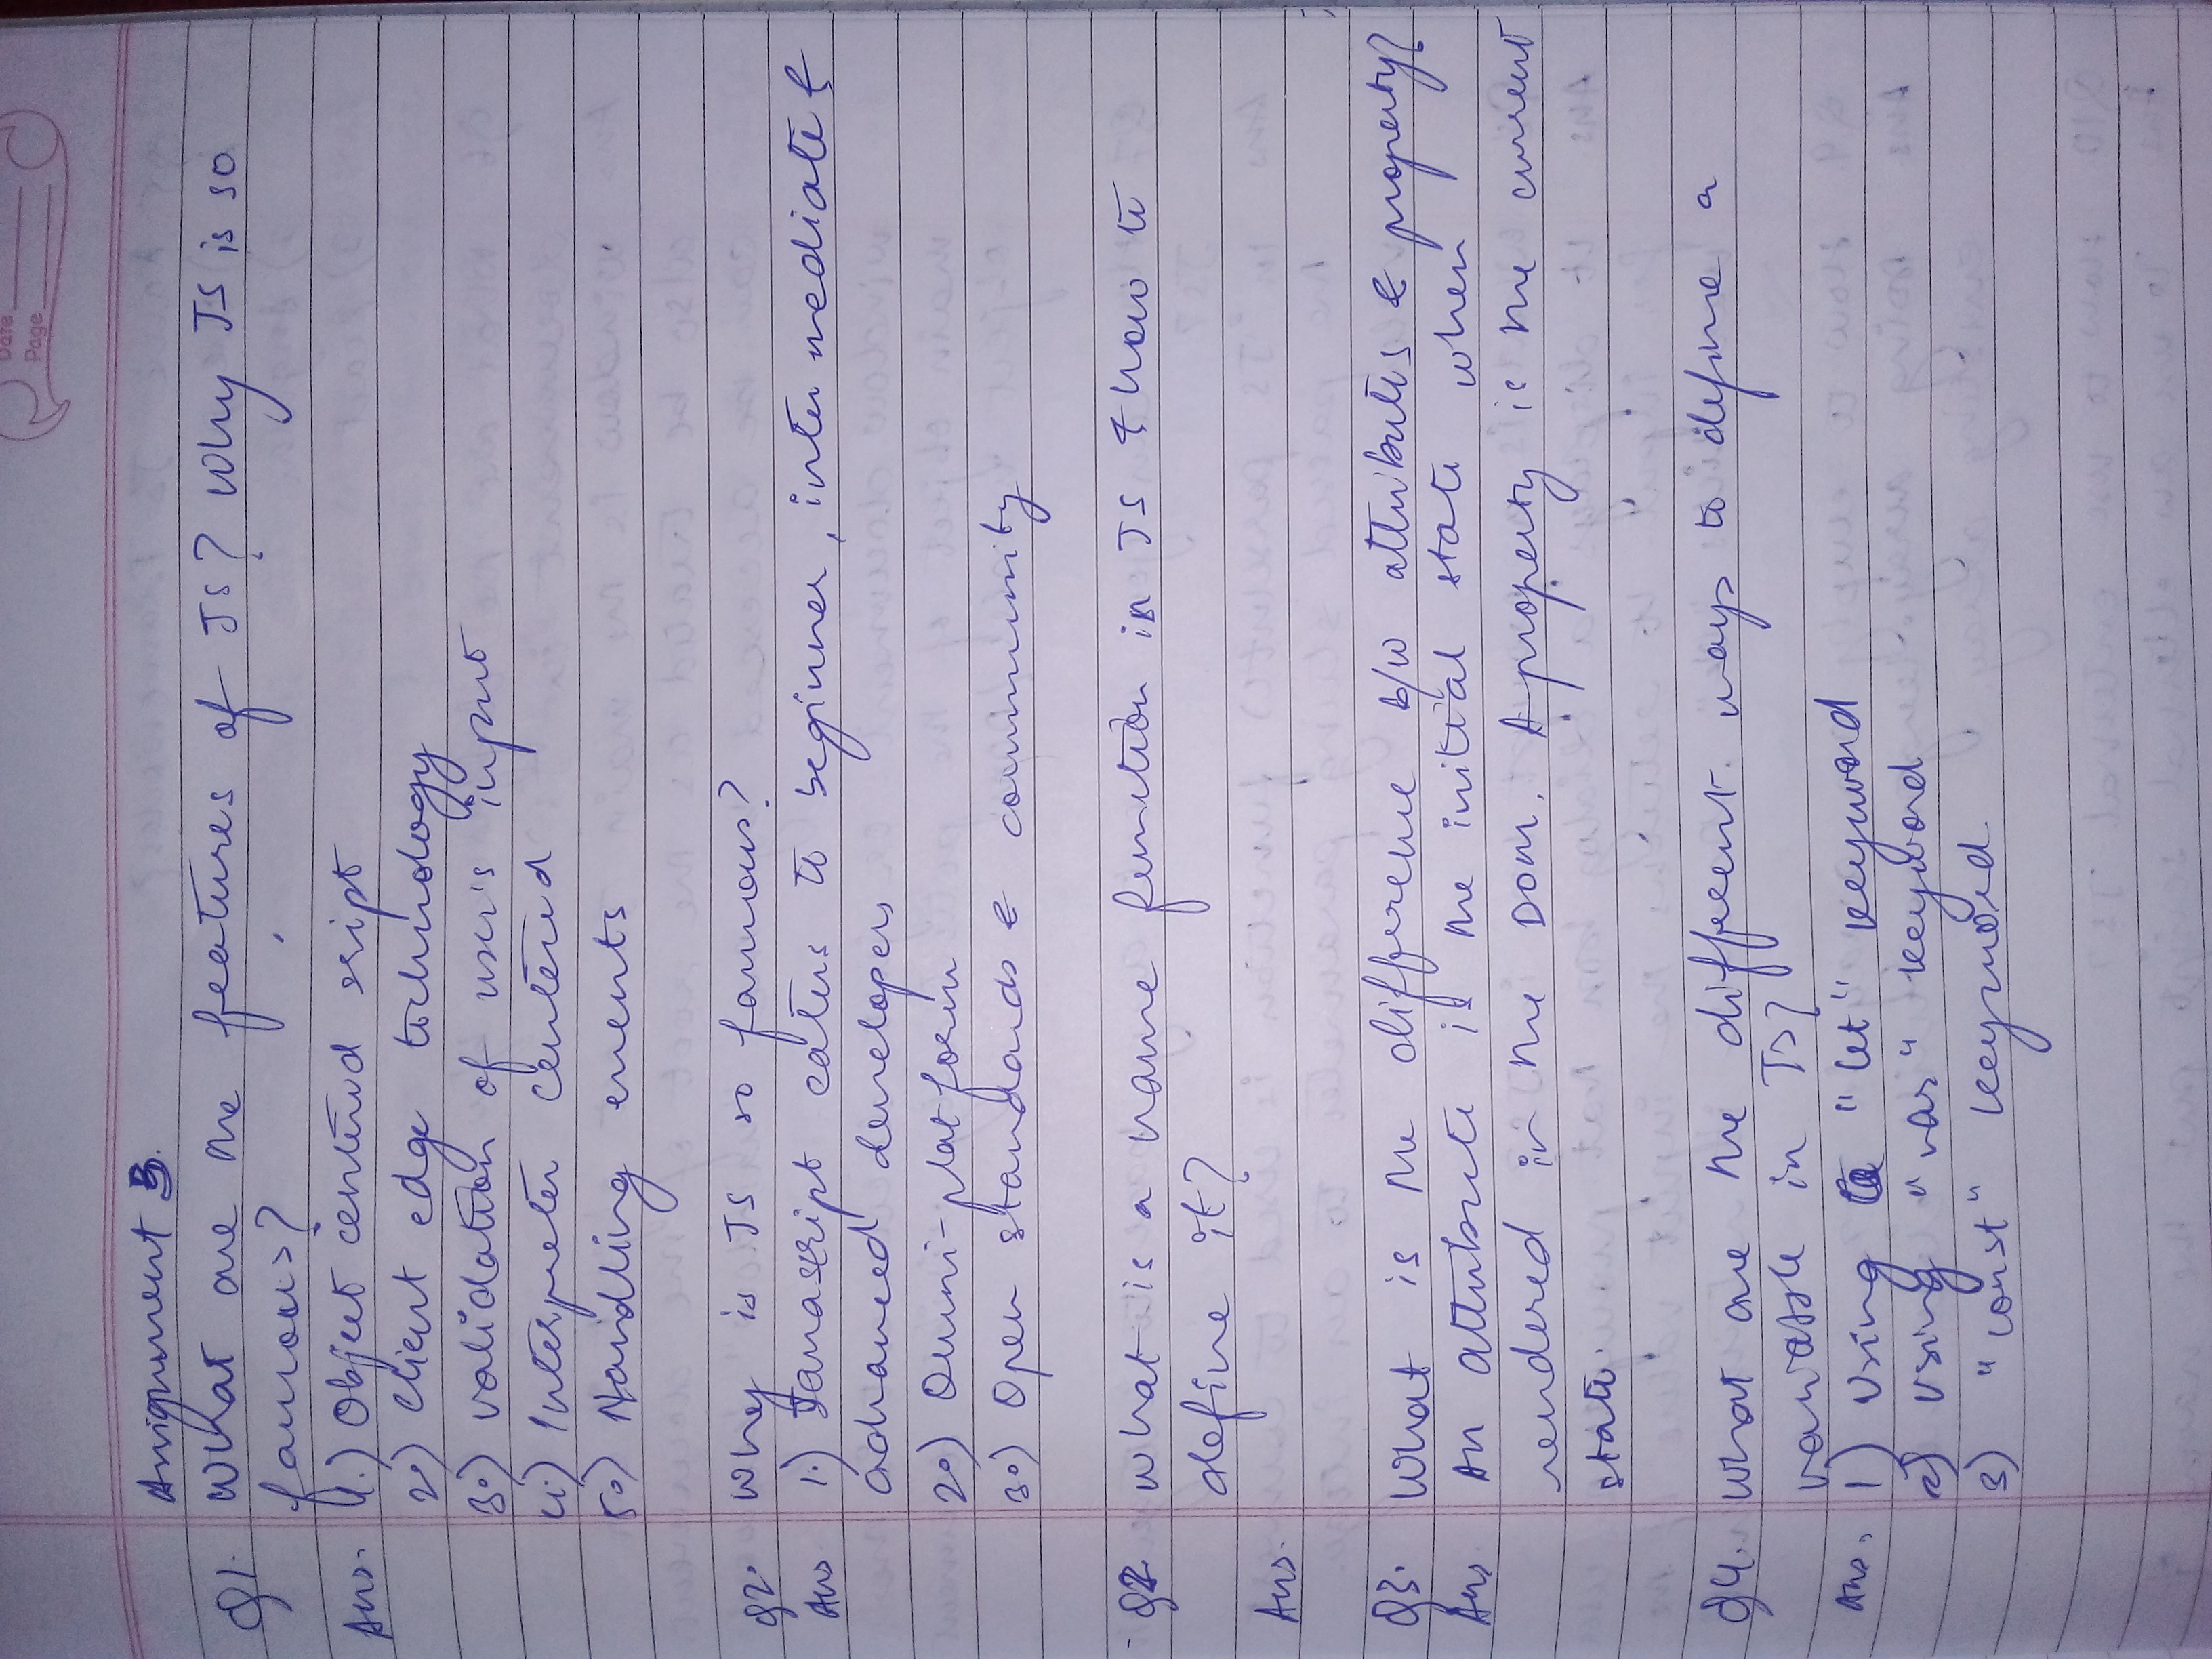 Date
Page
Assignment 3.
Q1. What are the features of JS? Why JS is so
famous?
Ans. 1.) Object centered script
2.) Client edge technology
3.) validation of user's input
4.) Interpreter centered
5.) Handling events
Q2. Why is JS so famous?
Ans 1.) Javascript caters to beginner, intermediate &
advanced developers
2.) Omni-platform
3.) Open standards & community
Q2 What is a name function in JS & how to
define it?
Ans.
Q3. What is the difference b/w attributes & property?
Ans An attribute is the initial state when
rendered in the DOM. A property is the current
state.
Q4. What are the different ways to define a
variable in JS?
Ans. 1) Using "let" keyword
2) Using "var" keyword
3) "const" keyword.